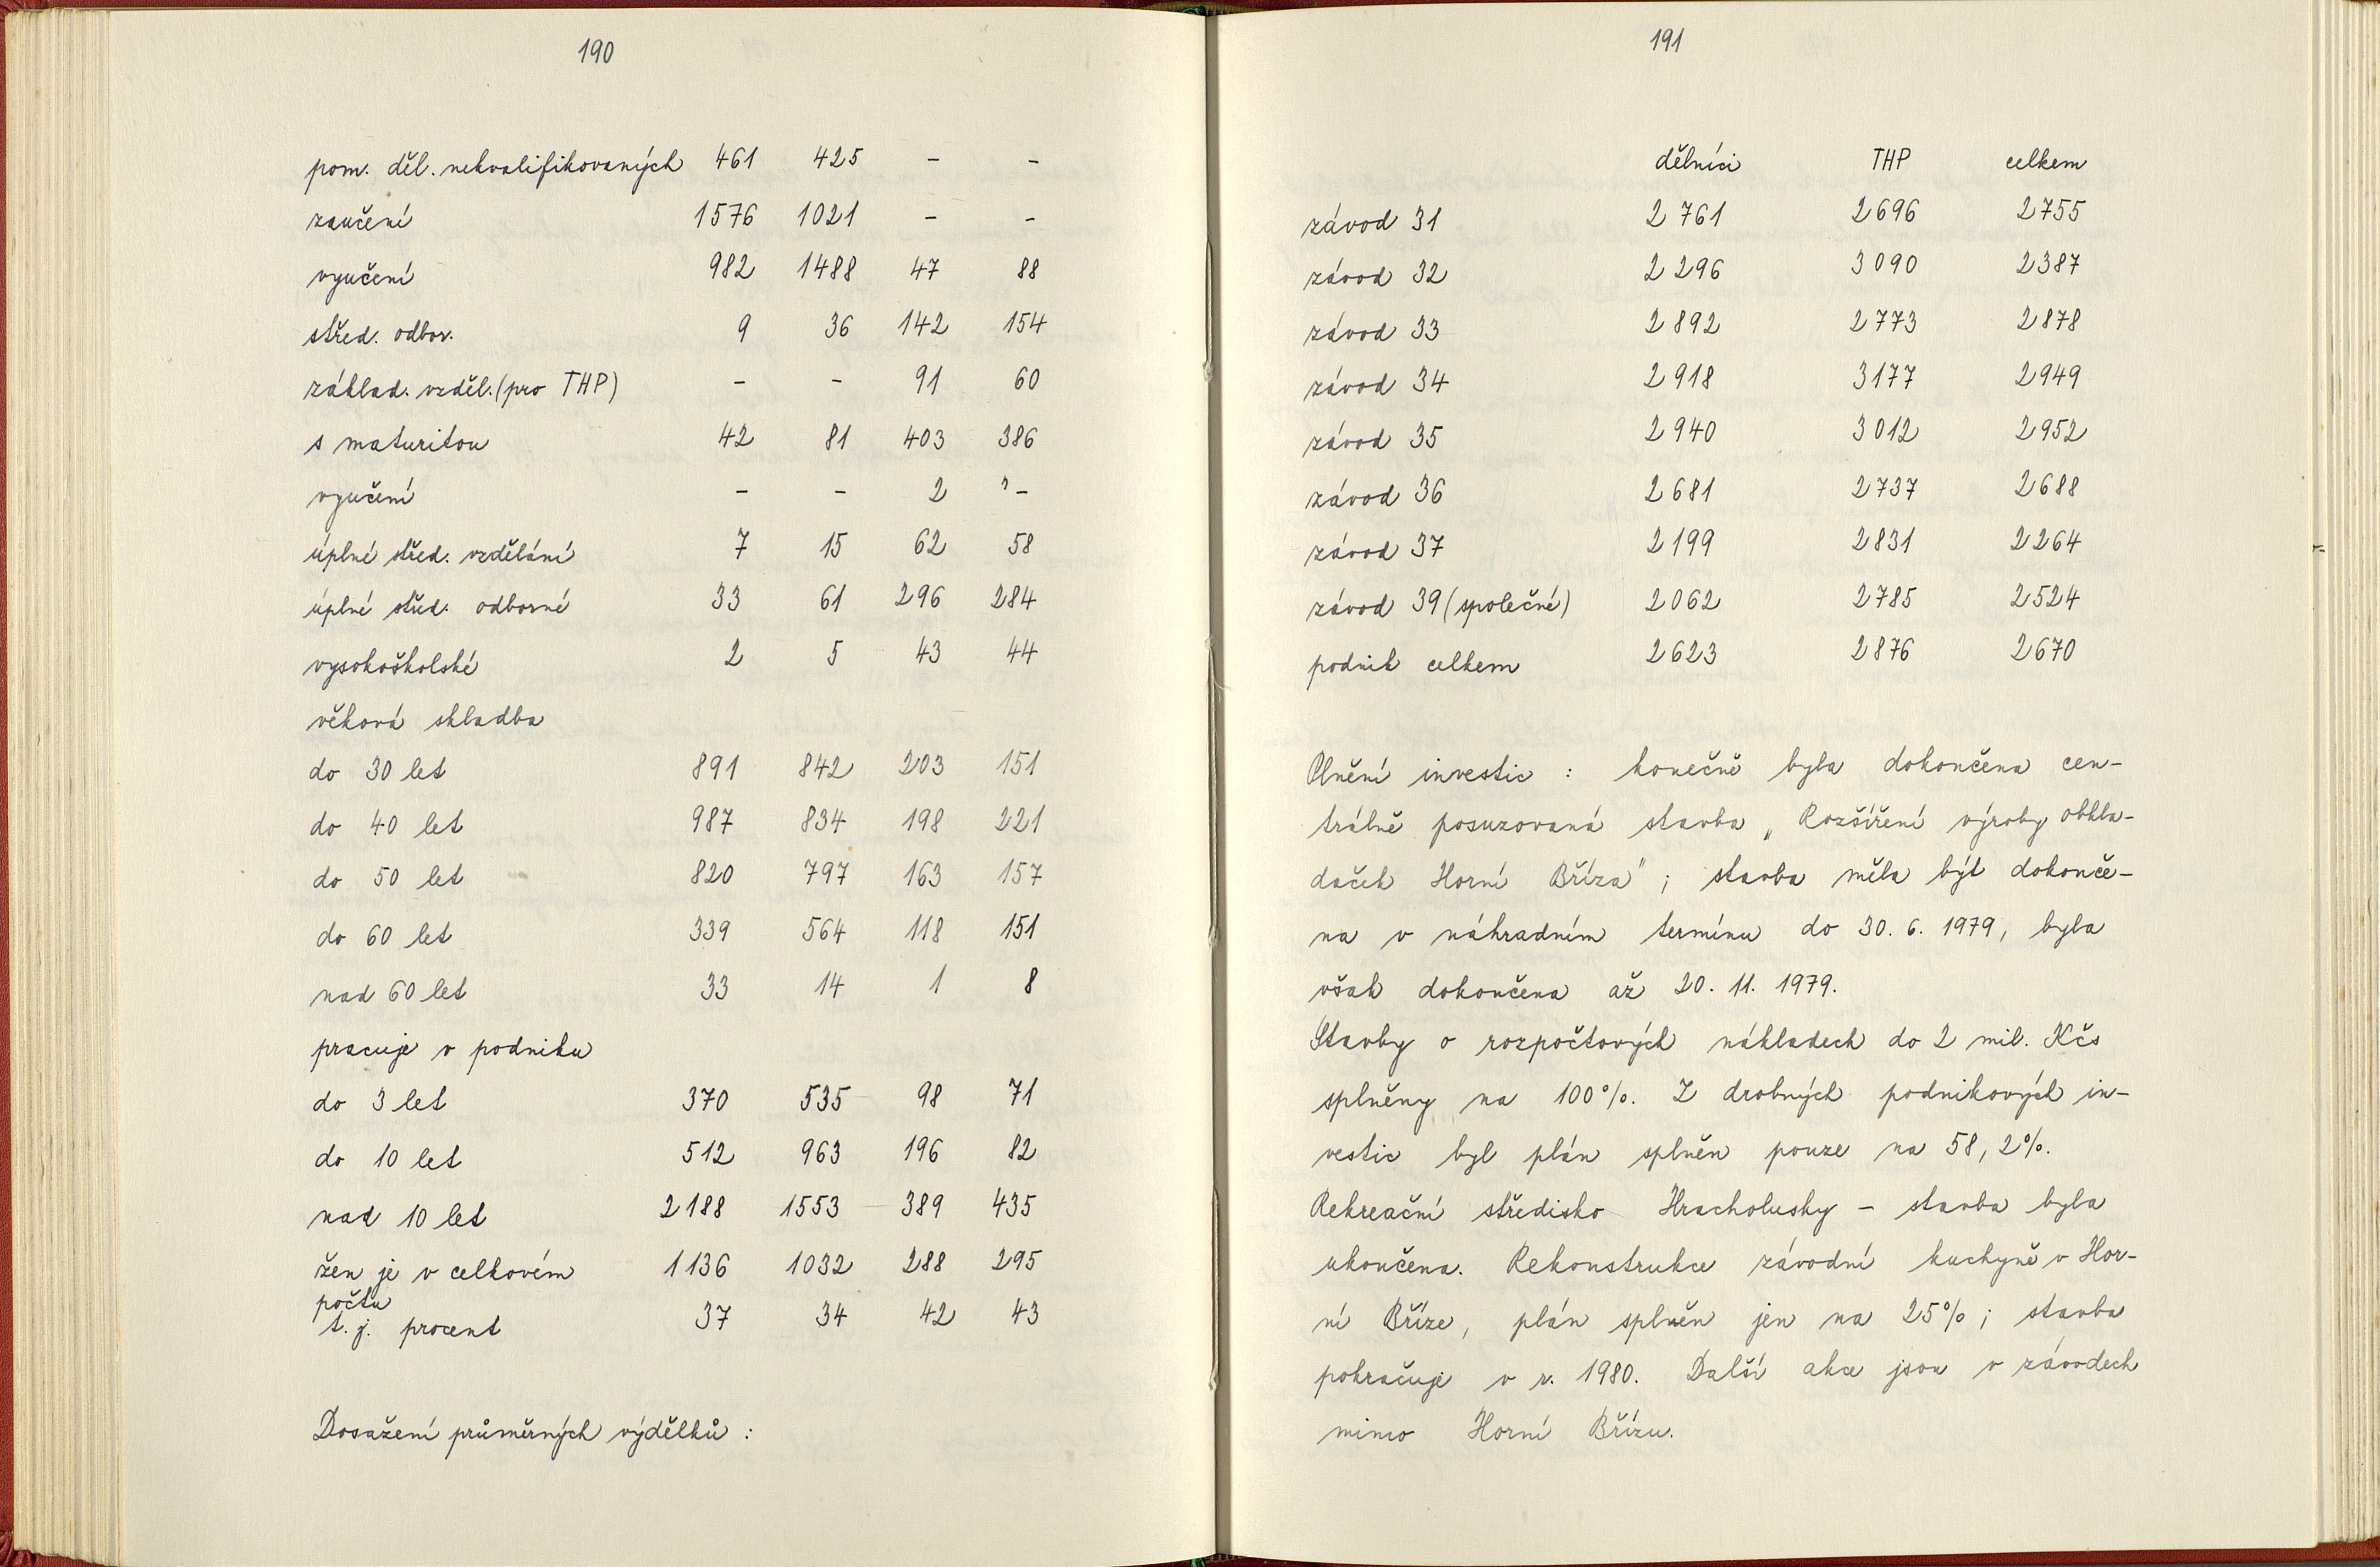 190
pom. děl. nekvalifikovaných 461 425 – –
zaučení 1576 1021 – –
vyučení 982 1488 47 88
střed. odbor. 9 36 142 154
základ. vzděl. (pro THP) – – 91 60
s maturitou 42 81 403 386
vyučení – – 2 –
úplné střed. vzdělání 7 15 62 58
úplné střed. odborné 33 61 296 284
vysokoškolské 2 5 43 44
věková skladba
do 30 let 891 842 203 151
do 40 let 987 834 198 221
do 50 let 820 797 163 157
do 60 let 339 564 118 151
nad 60 let 33 14 1 8
pracuje v podniku
do 3 let 370 535 98 71
do 10 let 512 963 196 82
nad 10 let 2188 1553 389 435
žen je v celkovém 1136 1032 288 295
počtu
t. j. procent 37 34 42 43
Dosažení průměrných výdělků :
191
dělníci THP celkem
závod 31 2 761 2696 2755
závod 32 2 296 3090 2387
závod 33 2 892 2773 2878
závod 34 2918 3177 2949
závod 35 2940 3012 2952
závod 36 2681 2737 2688
závod 37 2199 2831 2264
závod 39 (společné) 2062 2785 2524
podnik celkem 2623 2876 2670
Plnění investic : konečně byla dokončena cen-
trálně posuzovaná stavba „Rozšíření výroby obkla-
daček Horní Bříza" ; stavba měla být dokonče-
na v náhradním termínu do 30. 6. 1979, byla
však dokončena až 20. 11. 1979.
Stavby o rozpočtových nákladech do 2 mil. Kčs
splněny na 100%. Z drobných podnikových in-
vestic byl plán splněn pouze na 58, 2%.
Rekreační středisko Hracholusky – stavba byla
ukončena. Rekonstrukce závodní kuchyně v Hor-
ní Bříze, plán splněn jen na 25% ; stavba
pokračuje v r. 1980. Další akce jsou v závodech
mimo Horní Břízu.